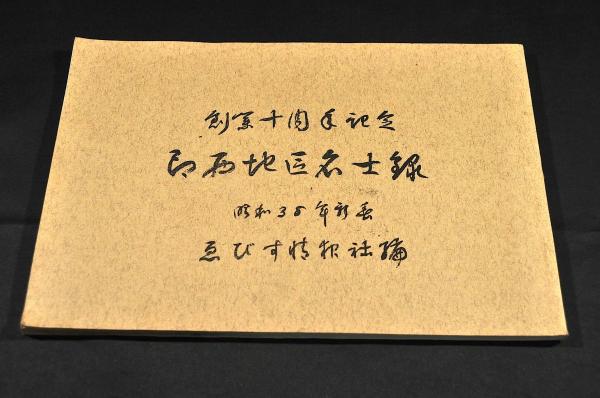 創業十周年記念
印西地区名士録
昭和38年新春
ゑびす情報社編